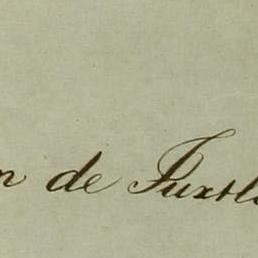 n de Tuxtl